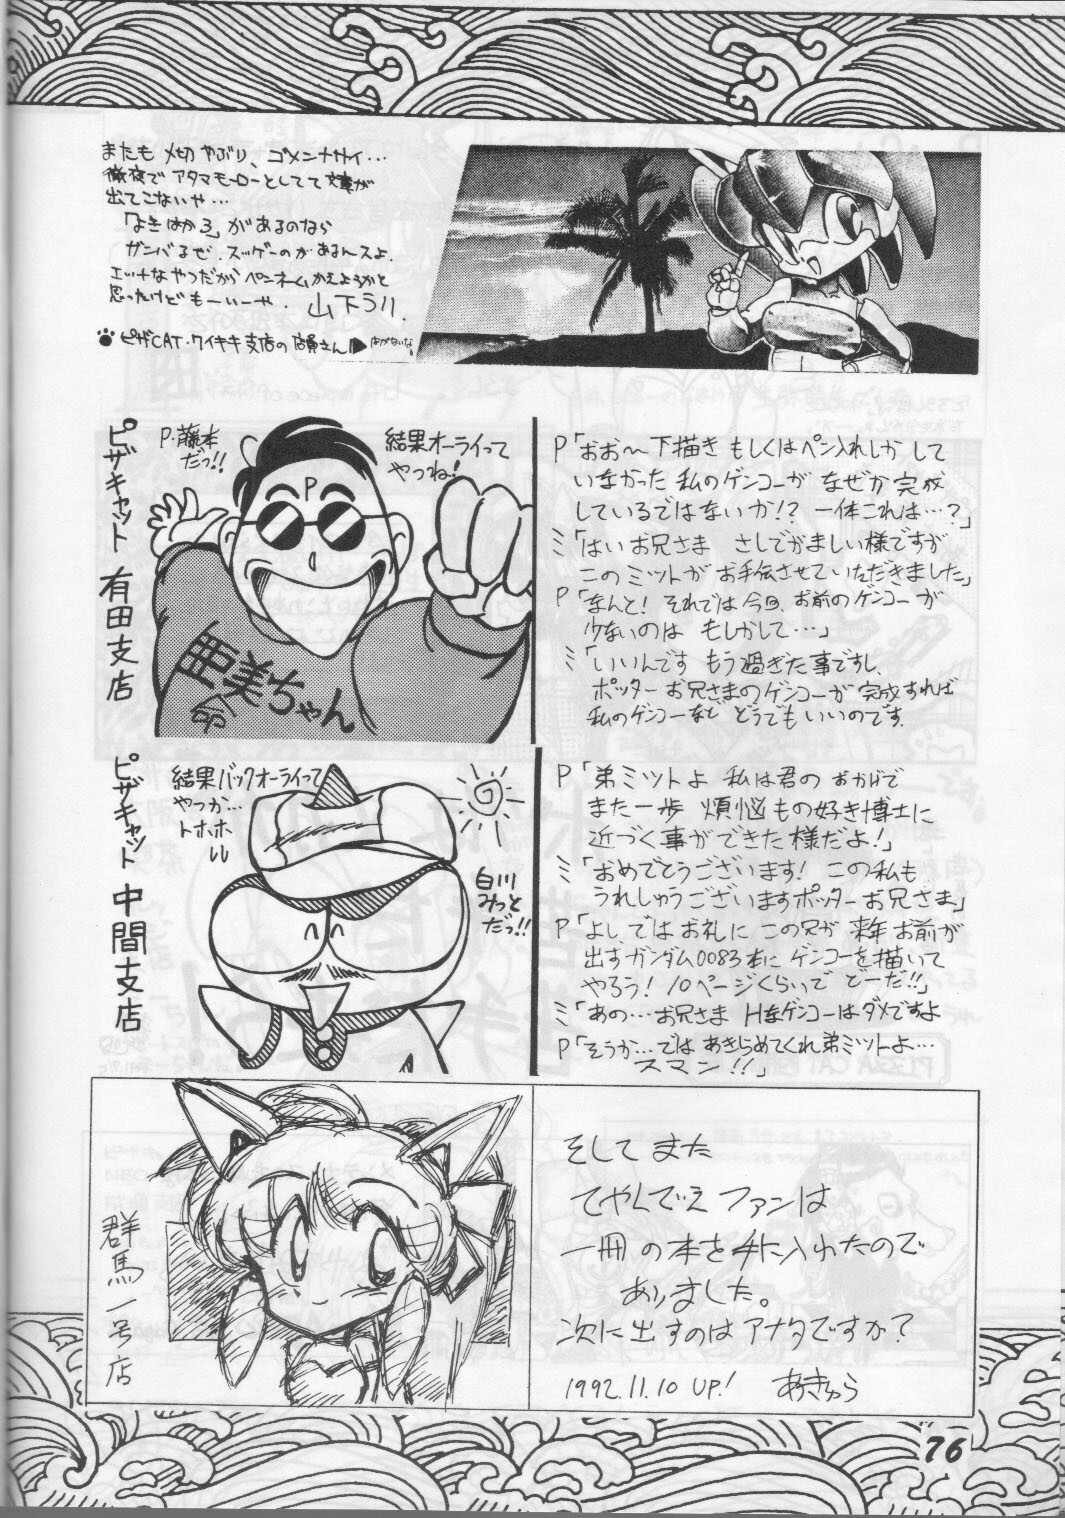 またも〆切やぶり、ゴメンナサイ…
徹夜でアタマモーローとしてて文章が
出てこないや…
「よきはから3」があるのなら
ガンバるぜ、スッゲーのがあるんスよ。
エッチなやつだからペンネームかえようかと
思ったけどもーいーや。山下うり
ピザCAT・ワイキキ支店の店員さん
はがないな
ピザキャット 有田支店
P・藤本
だっ!!
結果オーライって
やつね!
P
亜美ちゃん
命
P「おお～下描きもしくはペン入れしかして
いなかった私のゲンコーがなぜか完成
しているではないか!? 一体これは…?」
ミ「はいお兄さま さしでがましい様ですが
このミットがお手伝させていただきました」
P「なんと! それでは今回、お前のゲンコーが
少ないのは もしかして…」
ミ「いいんです もう過ぎた事ですし、
ポッターお兄さまのゲンコーが完成すれば
私のゲンコーなど どうでもいいのです。
ピザキャット 中間支店
結果バックオーライって
やつか…
トホホ
白川
みっと
だっ!!
P「弟ミットよ 私は君のおかげで
また一歩 煩悩もの好き博士に
近づく事ができた様だよ!」
ミ「おめでとうございます! この私も
うれしゅうございますポッターお兄さま」
P「よし、ではお礼にこの兄が来年お前が
出すガンダム0083本にゲンコーを描いて
やろう! 10ページくらいでどーだ!!」
ミ「あの…お兄さま Hなゲンコーはダメですよ
P「そうか…ではあきらめてくれ弟ミットよ…
スマン!!」
群馬一号店
そしてまた
てやんでえファンは
一冊の本を手に入れたので
ありました。
次に出すのはアナタですか?
1992.11.10 UP! あきゅら
76